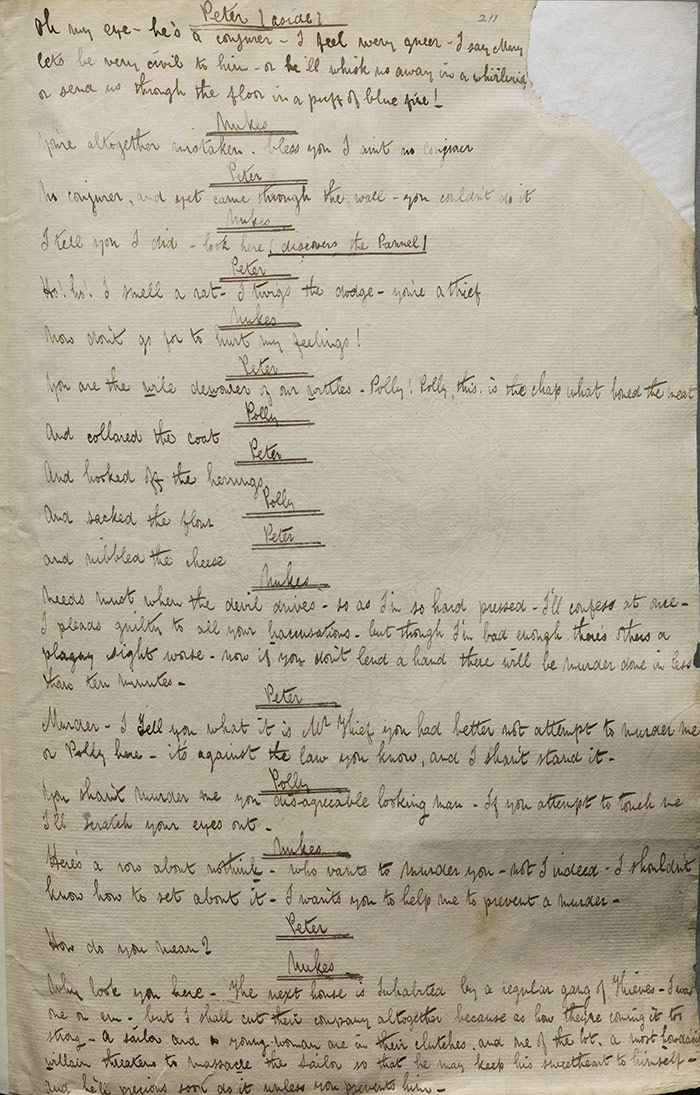 Peter (aside) 211
Oh my eye - he's a conjurer - I feel wery queer - I say Mary
lets be very civil to him - or he'll whisk us away in a whirlwind
or send us through the floor in a puff of blue fire!
Nukes
You're altogether mistaken. bless you I aint no conjurer
Peter
No conjurer, and yet came through the wall - you couldn't do it
Nukes
I tell you I did - look here (discovers the Pannel)
Peter
Ho! ho! I smell a rat - I twigs the dodge - you're a thief
Nukes
Now don't go for to hurt my feelings!
Peter
You are the wile dewourer of our wittles - Polly! Polly, this is the chap what boned the meat
Polly
And collared the coat
Peter
And hooked off the herrings
Polly
And sacked the flour
Peter
and nibbled the cheese
Nukes
Needs must when the devil drives - so as I'm so hard pressed - I'll confess at once -
I pleads guilty to all your haccusations - but though I'm bad enough there's others a
plaguy sight worse - now if you don't lend a hand there will be murder done in less
than ten minutes -
Peter
Murder - I tell you what it is Mr Thief you had better not attempt to murder me
or Polly here - its against the law you know, and I shan't stand it -
Polly
You shan't murder me you disagreeable looking man - If you attempt to touch me
I'll scratch your eyes out -
Nukes
Here's a row about nothink - who wants to murder you - not I indeed - I shouldn't
know how to set about it - I wants you to help me to prevent a murder -
Peter
How do you mean?
Nukes
Why look you here - The next house is Inhabited by a regular gang of Thieves - I was
one on em - but I shall cut their company altogether because as how they're coming it too
strong - a sailor and a young woman are in their clutches, and one of the lot, a most howdacious
willain threatens to massacre the sailor so that he may keep his sweetheart to himself -
and he'll precious soon do it unless you prevents him -